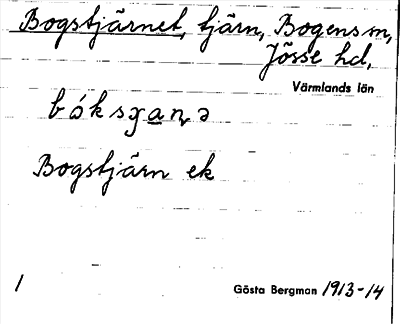 Bogstjärnet, tjärn, Bogens sn,
Jösse hd,
Värmlands län
Bogstjärn ek
1
Gösta Bergman 1913-14